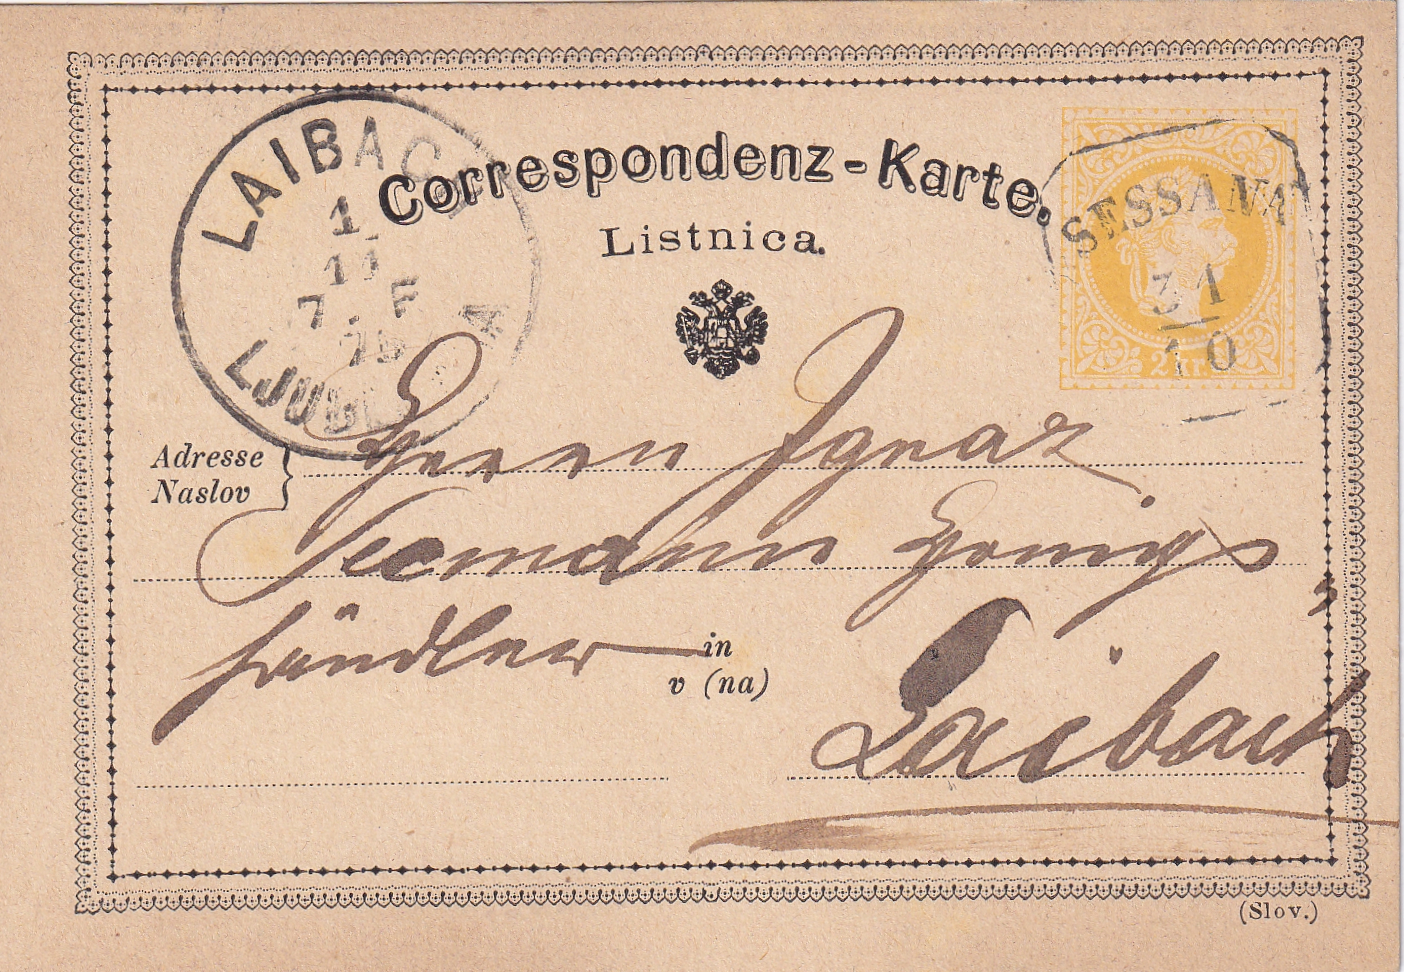 Correspondenz-Karte.
Listnica.
LAIBACH
1
11
7 F
75
LJUBL A
SESSANA
31
10
2 kr.
Adresse
Naslov
Herrn Ignaz
Seemann Honig
händler in
v (na)
Laibach
(Slov.)